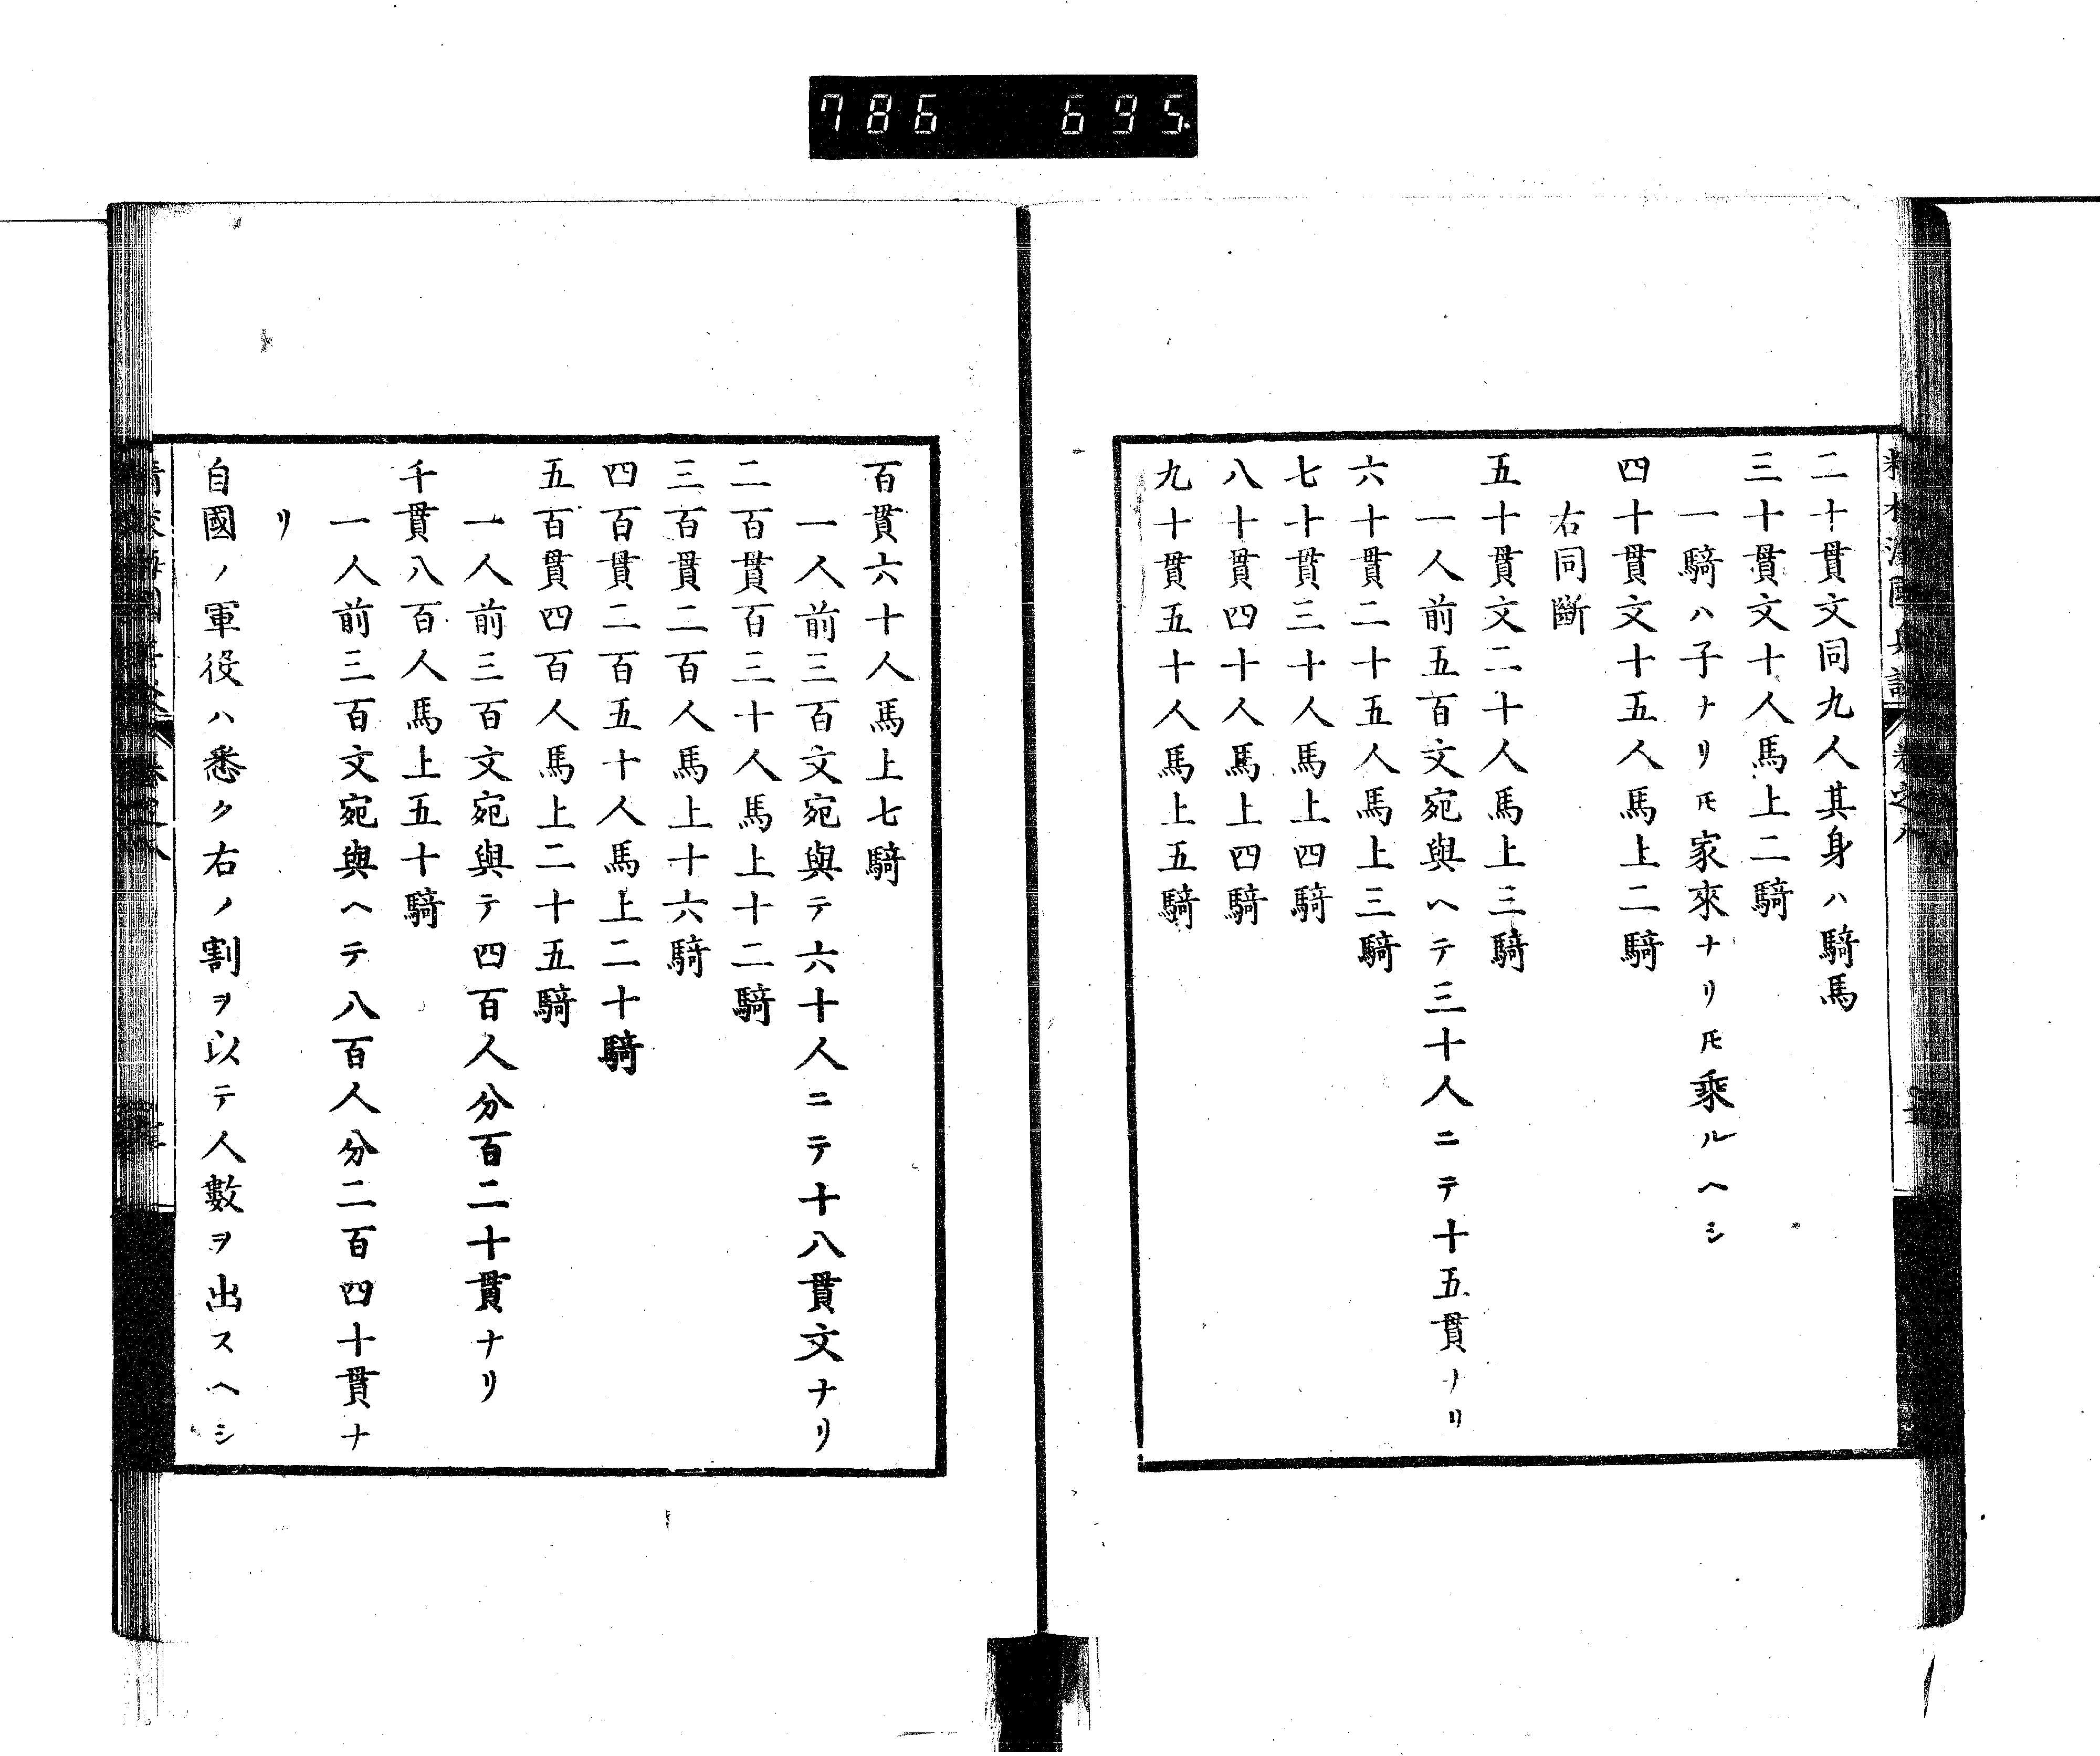 786 695
二十貫文同九人其身ハ騎馬
三十貫文十人馬上二騎
一騎ハ子ナリ𪜈家來ナリ𪜈乘ルヘシ
四十貫文十五人馬上二騎
右同斷
五十貫文二十人馬上三騎
一人前五百文宛與ヘテ三十人ニテ十五貫ナリ
六十貫二十五人馬上三騎
七十貫三十人馬上四騎
八十貫四十人馬上四騎
九十貫五十人馬上五騎
百貫六十人馬上七騎
一人前三百文宛與テ六十人ニテ十八貫文ナリ
二百貫百三十人馬上十二騎
三百貫二百人馬上十六騎
四百貫二百五十人馬上二十騎
五百貫四百人馬上二十五騎
一人前三百文宛與テ四百人分百二十貫ナリ
千貫八百人馬上五十騎
一人前三百文宛與ヘテ八百人分二百四十貫ナ
リ
自國ノ軍役ハ悉ク右ノ割ヲ以テ人數ヲ出スヘシ